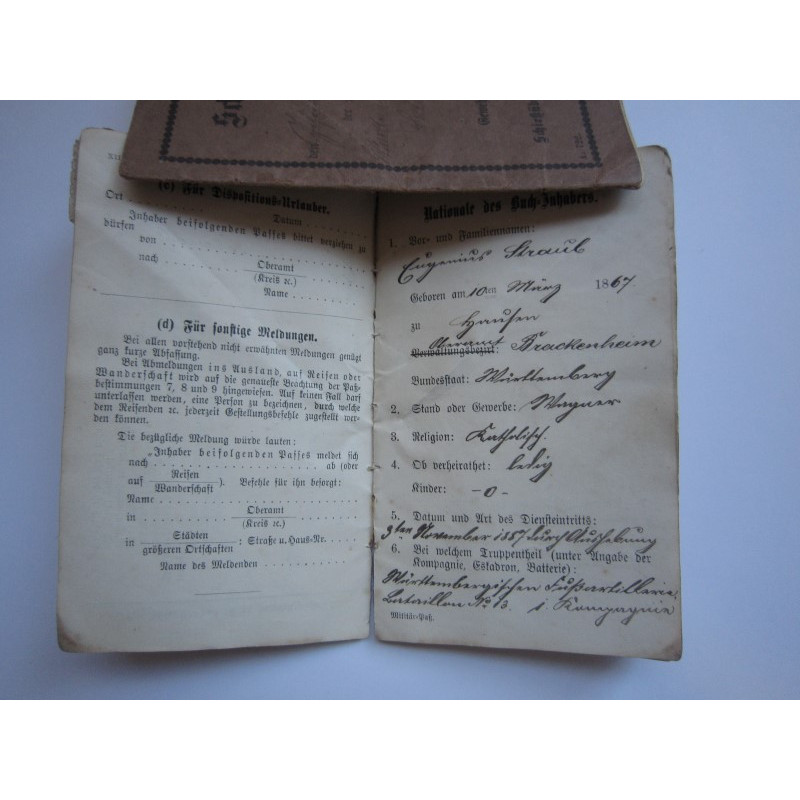 Schießbü
A. 7291.
XII
(c) Für Dispositions-Urlauber.
Ort
Datum
Inhaber beifolgenden Passes bittet verziehen zu
dürfen
von
nach
Oberamt
(Kreis ꝛc.)
Name
(d) Für sonstige Meldungen.
Bei allen vorstehend nicht erwähnten Meldungen genügt
ganz kurze Abfassung.
Bei Abmeldungen ins Ausland, auf Reisen oder
Wanderschaft wird auf die genaueste Beachtung der Paß-
bestimmungen 7, 8 und 9 hingewiesen. Auf keinen Fall darf
unterlassen werden, eine Person zu bezeichnen, durch welche
dem Reisenden ꝛc. jederzeit Gestellungsbefehle zugestellt wer-
den können.
Die bezügliche Meldung würde lauten:
„Inhaber beifolgenden Passes meldet sich
nach ab (oder
auf Reisen
Wanderschaft). Befehle für ihn besorgt:
Name
in Oberamt
(Kreis ꝛc.)
in Städten
größeren Ortschaften : Straße u. Haus-Nr.
Name des Meldenden
Nationale des Buch-Inhabers.
1. Vor- und Familiennamen:
Eugenius Straub
Geboren am 10ten März 1867
zu Hausen
Oberamt
Verwaltungsbezirk: Brackenheim
Bundesstaat: Württemberg
2. Stand oder Gewerbe: Wagner
3. Religion: Katholisch.
4. Ob verheirathet: ledig
Kinder: -0-
5. Datum und Art des Diensteintritts:
3ten November 1887 durch Aushebung
6. Bei welchem Truppentheil (unter Angabe der
Kompagnie, Eskadron, Batterie):
Württembergischen Fußartillerie-
Bataillon No 13. 1. Kompagnie
Militär-Paß.